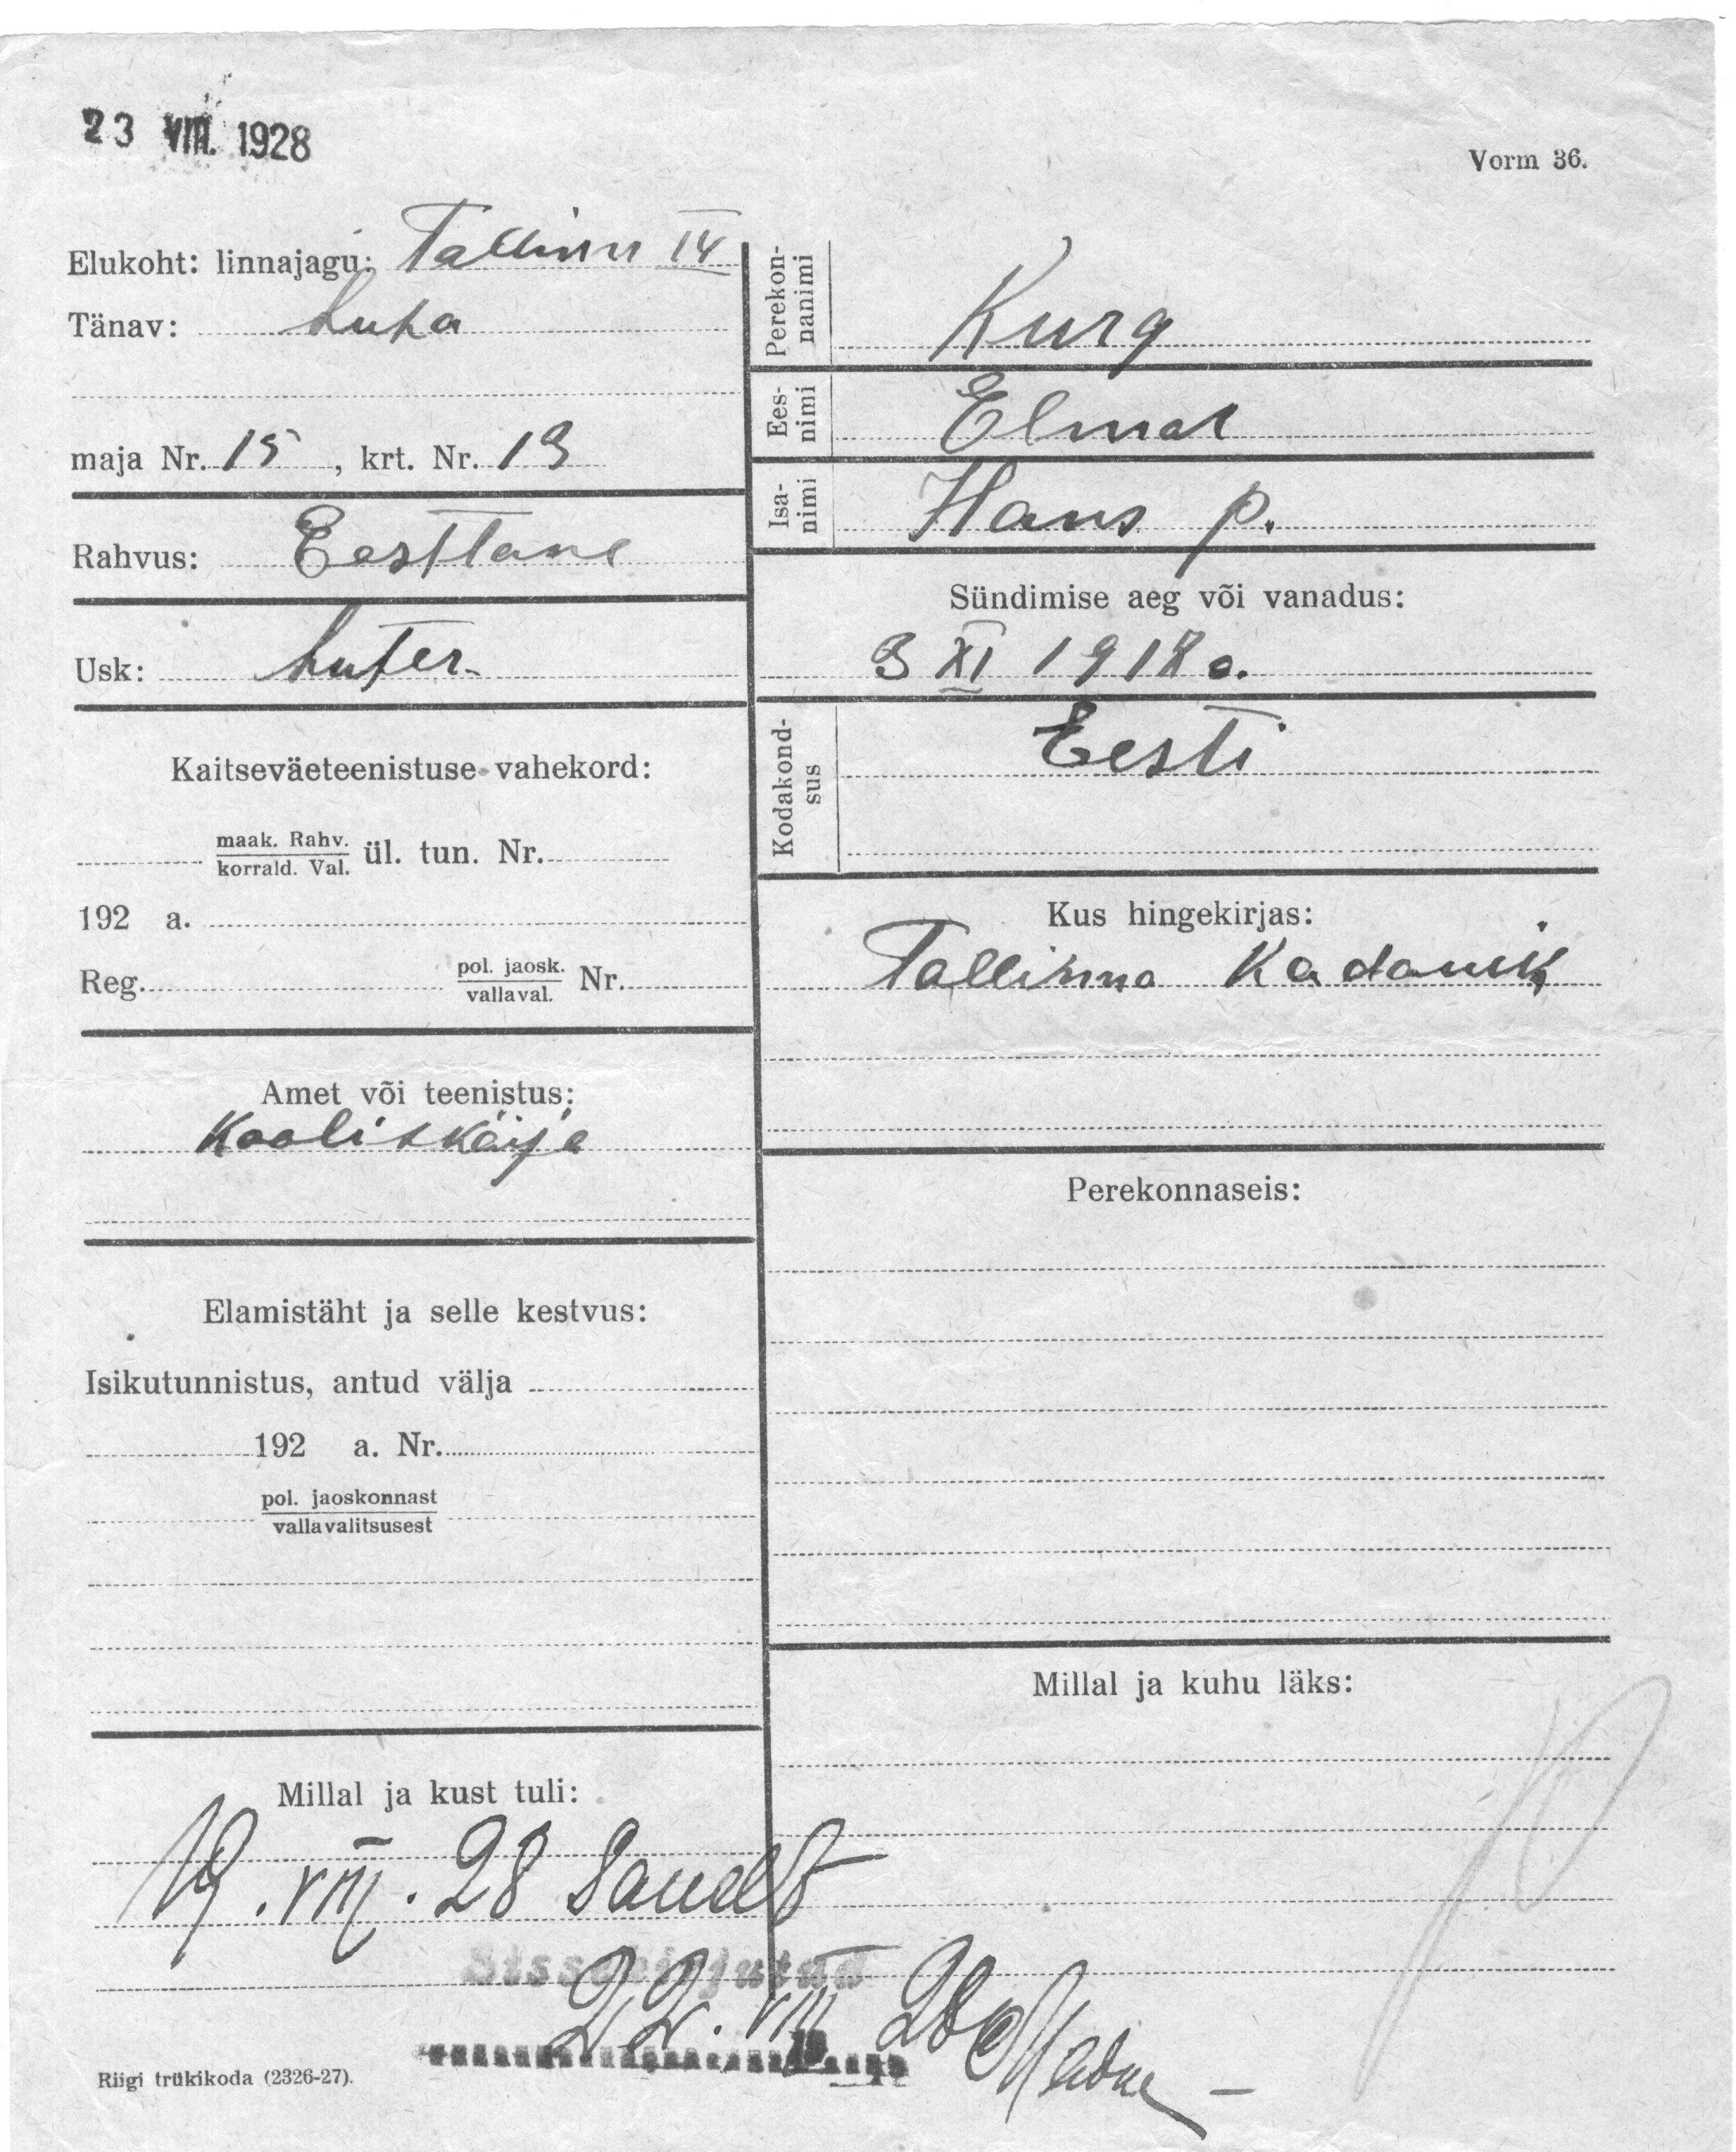 23 VIII. 1928
Vorm 36.
Elukoht: linnajagu: Tallinn IV
Tänav: Luha
maja Nr. 15, krt. Nr. 13
Rahvus: Eestlane
Usk: Luter.
Kaitseväeteenistuse vahekord:
maak. Rahv.
korrald. Val. ül. tun. Nr.
192 a.
Reg. pol. jaosk.
vallaval. Nr.
Amet või teenistus:
Kooliskäija
Elamistäht ja selle kestvus:
Isikutunnistus, antud välja
192 a. Nr.
pol. jaoskonnast
vallavalitsusest
Millal ja kust tuli:
19. VIII. 28
Perekon-
nanimi Kurg
Ees-
nimi Elmar
Isa-
nimi Hans p.
Sündimise aeg või vanadus:
3 XI 1918 a.
Kodakond-
sus Eesti
Kus hingekirjas:
Tallinna Kodanik
Perekonnaseis:
Millal ja kuhu läks:
Sissekirjutud
22. VIII 28
Riigi trükikoda (2326-27).